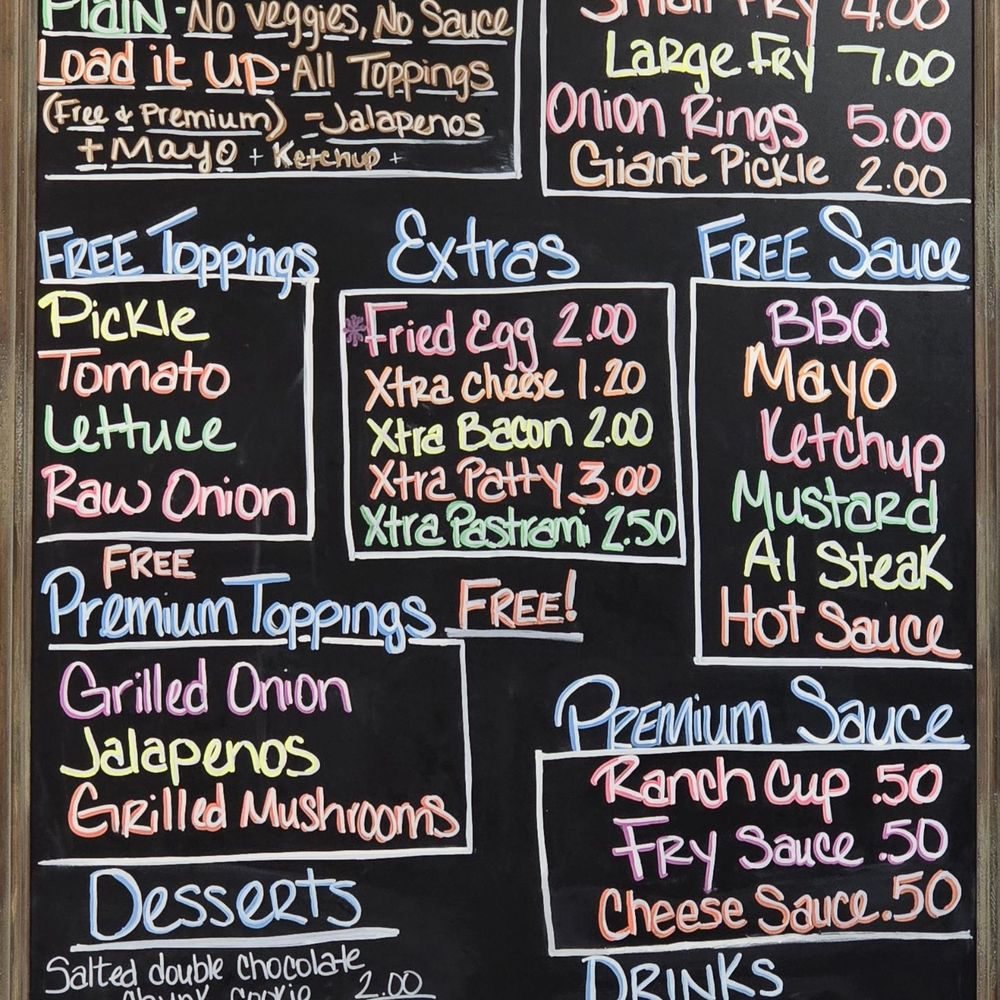 Plain - No veggies, No Sauce
Load it UP - All Toppings
(Free & Premium) - Jalapenos
+ Mayo + Ketchup +
Small Fry 4.00
Large Fry 7.00
Onion Rings 5.00
Giant Pickle 2.00
FREE Toppings
Pickle
Tomato
Lettuce
Raw Onion
Extras
Fried Egg 2.00
Xtra cheese 1.20
Xtra Bacon 2.00
Xtra Patty 3.00
Xtra Pastrami 2.50
FREE Sauce
BBQ
Mayo
Ketchup
Mustard
A1 Steak
Hot Sauce
FREE
Premium Toppings FREE!
Grilled Onion
Jalapenos
Grilled Mushrooms
Premium Sauce
Ranch Cup .50
Fry Sauce .50
Cheese Sauce .50
Desserts
Salted double chocolate
chunk cookie 2.00
DRINKS